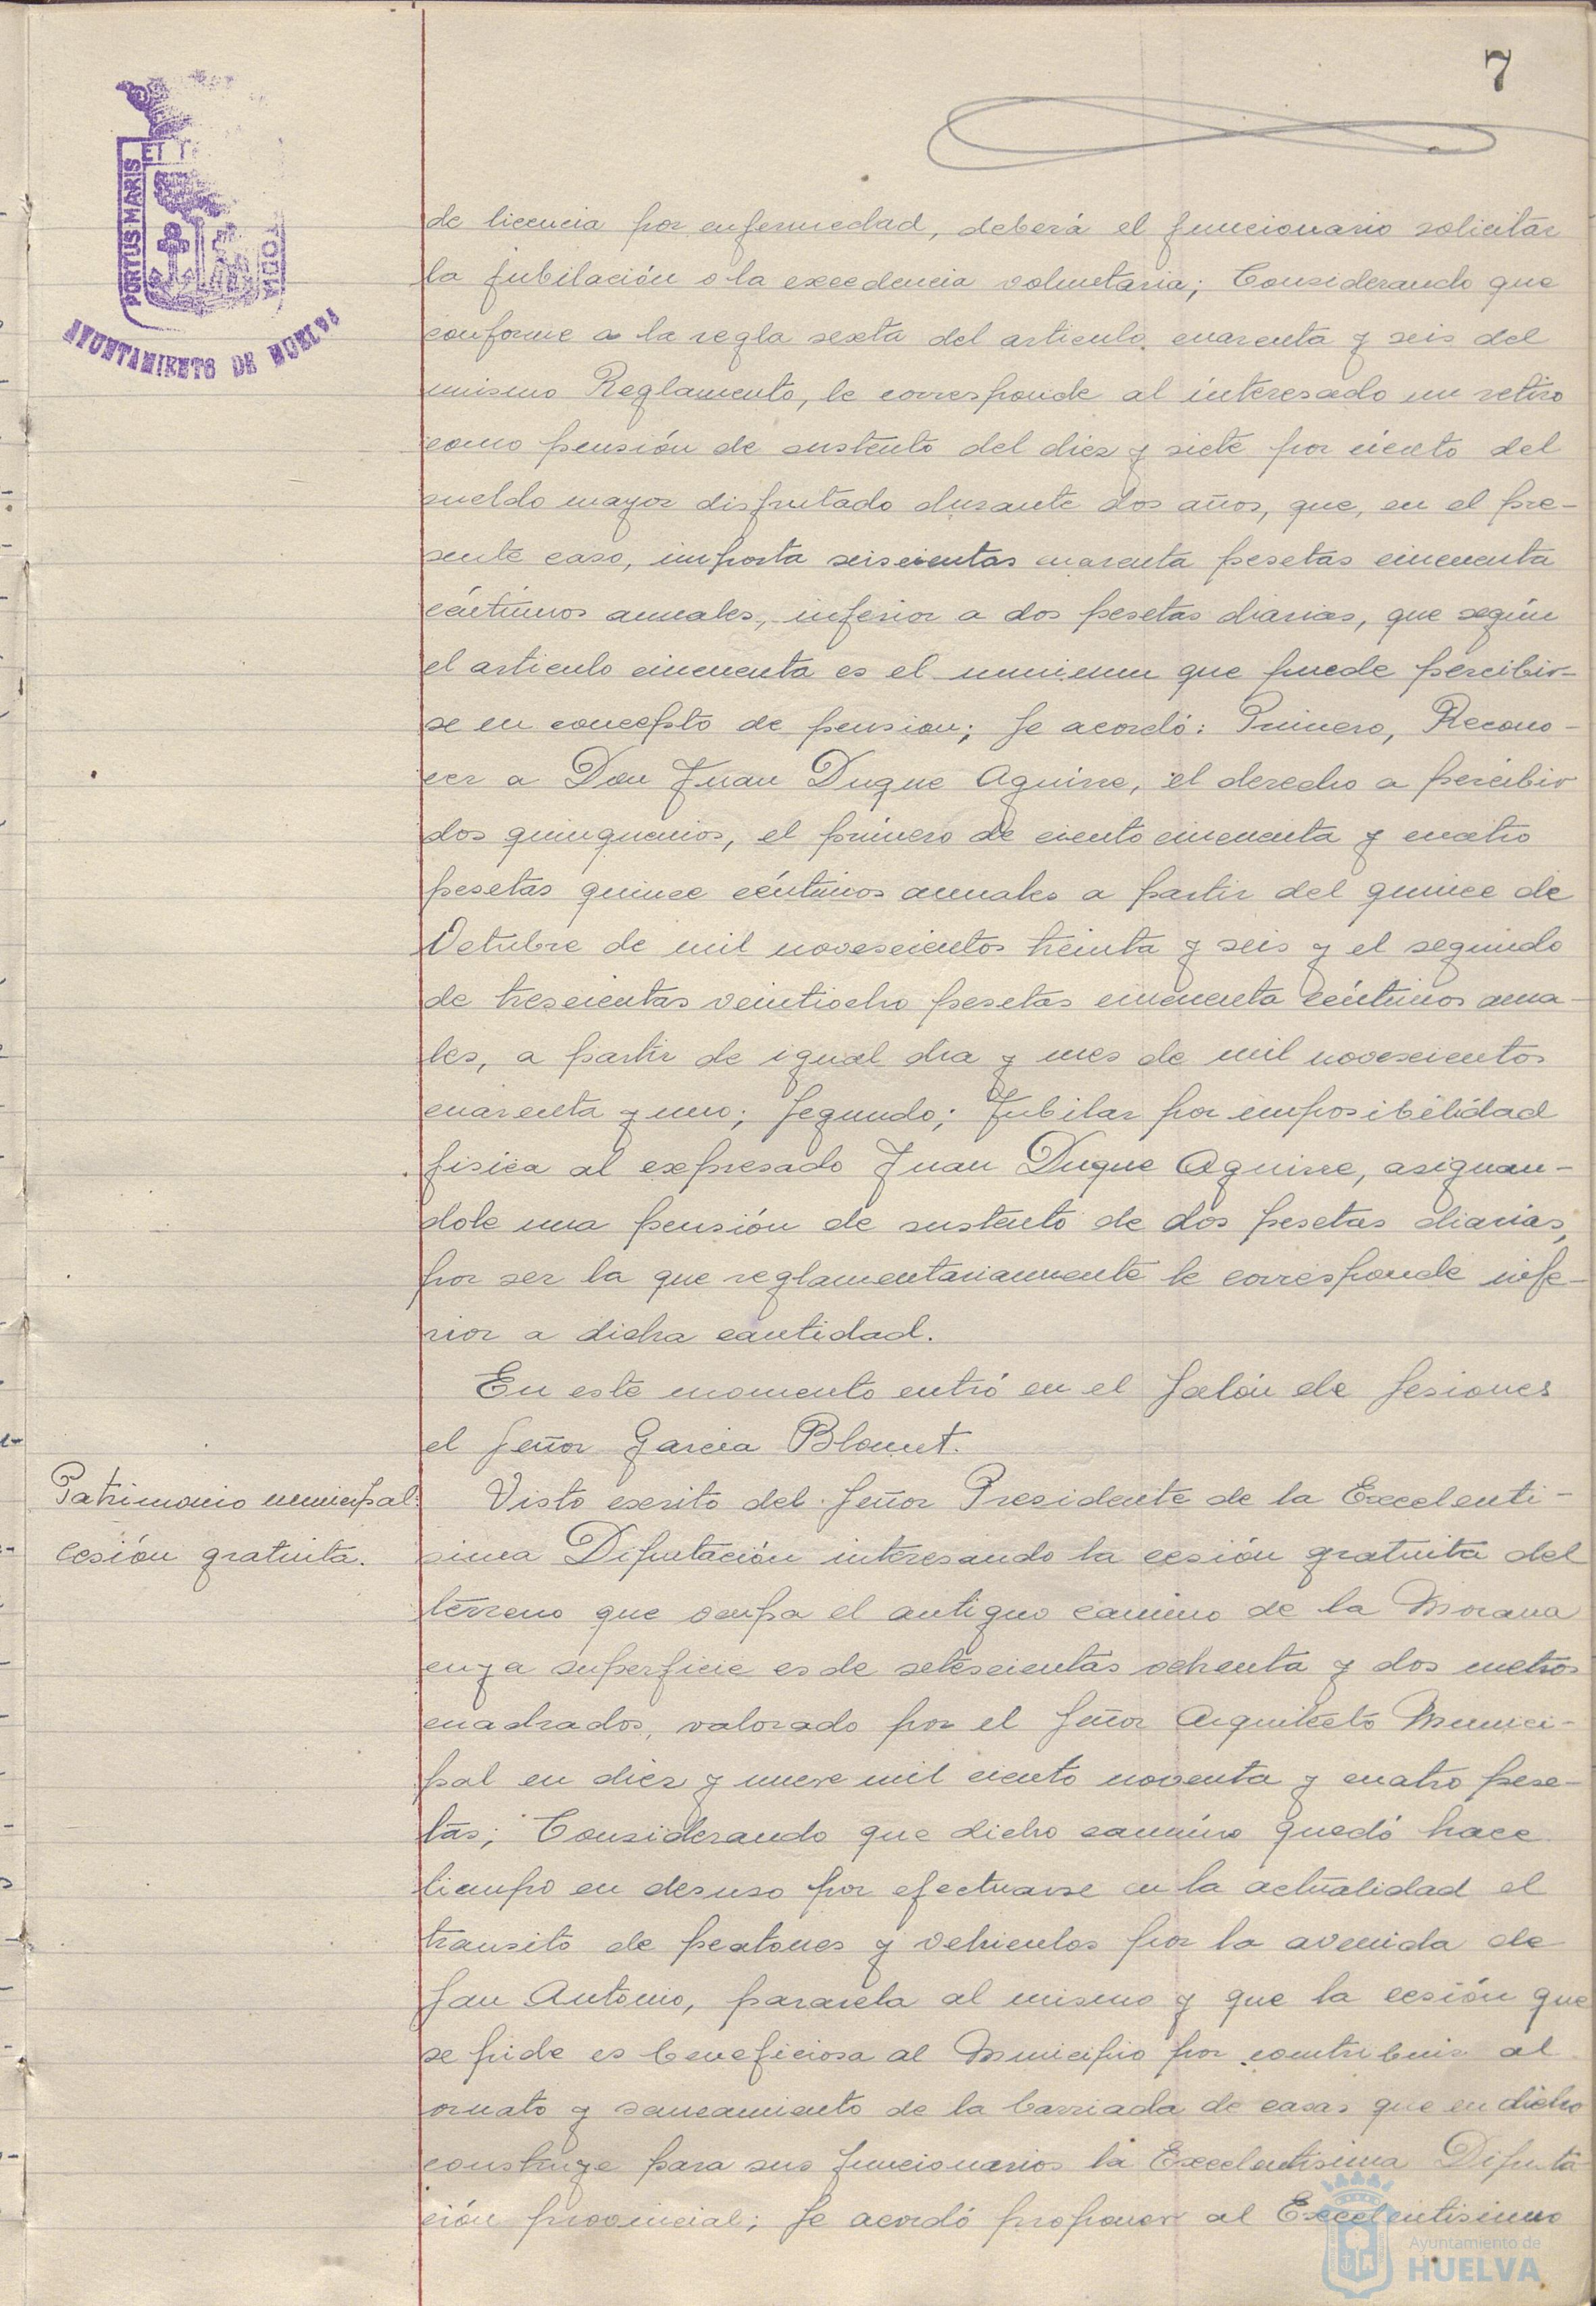 7
PORTUS MARIS
ET T
AYUNTAMIENTO DE HUELVA
de licencia por enfermedad, deberá el funcionario solicitar
la jubilación o la excedencia voluntaria; Considerando que
conforme a la regla sexta del articulo cuarenta y seis del
mismo Reglamento, le corresponde al interesado un retiro
como pensión de sustento del diez y siete por ciento del
sueldo mayor disfrutado durante dos años, que, en el pre-
sente caso, importa seiscientas cuarenta pesetas cincuenta
céntimos anuales, inferior a dos pesetas diarias, que según
el articulo cincuenta es el minimun que puede percibir-
se en concepto de pension; Se acordó: Primero, Recono-
cer a Don Juan Duque Aguirre, el derecho a percibir
dos quinquenios, el primero de ciento cincuenta y cuatro
pesetas quince céntimos anuales a partir del quince de
Octubre de mil novescientos treinta y seis y el segundo
de trescientas veintiocho pesetas cincuenta céntimos anua-
les, a partir de igual dia y mes de mil novescientos
cuarenta y uno; Segundo; Jubilar por imposibilidad
fisica al expresado Juan Duque Aguirre, asignan-
dole una pensión de sustento de dos pesetas diarias,
por ser la que reglamentariamente le corresponde infe-
rior a dicha cantidad.
En este momento entró en el Salón de Sesiones
el Señor Garcia Blomet.
Patrimonio municipal:
Cesión gratuita.
Visto escrito del Señor Presidente de la Excelenti-
sima Diputación interesando la cesión gratuita del
terreno que ocupa el antiguo camino de la Morana
cuya superficie es de setescientas ochenta y dos metros
cuadrados, valorado por el Señor Arquitecto Munici-
pal en diez y nueve mil ciento noventa y cuatro pese-
tas; Considerando que dicho camino quedó hace
tiempo en desuso por efectuarse en la actualidad el
transito de peatones y vehiculos por la avenida de
San Antonio, pararela al mismo y que la cesión que
se pide es beneficiosa al Municipio por contribuir al
ornato y saneamiento de la barriada de casas que en dicho
construye para sus funcionarios la Excelentisima Diputa
ción provincial; Se acordó proponer al Excelentisimo
Ayuntamiento de
HUELVA